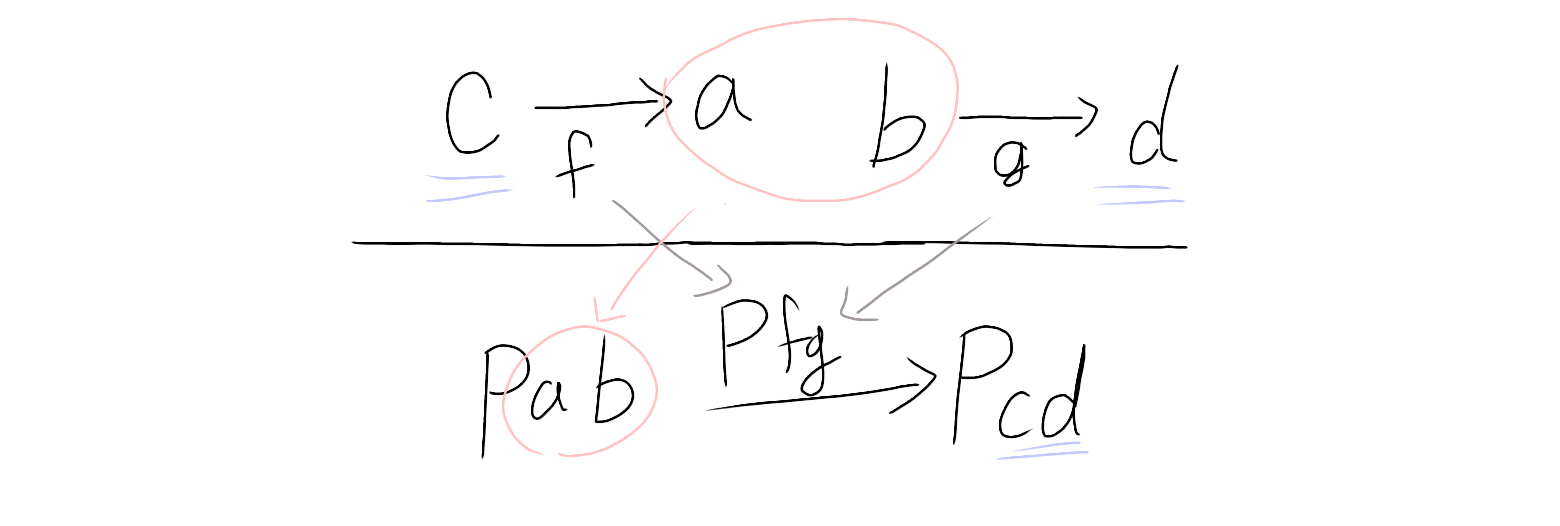 c f a b g d
Pab Pfg Pcd